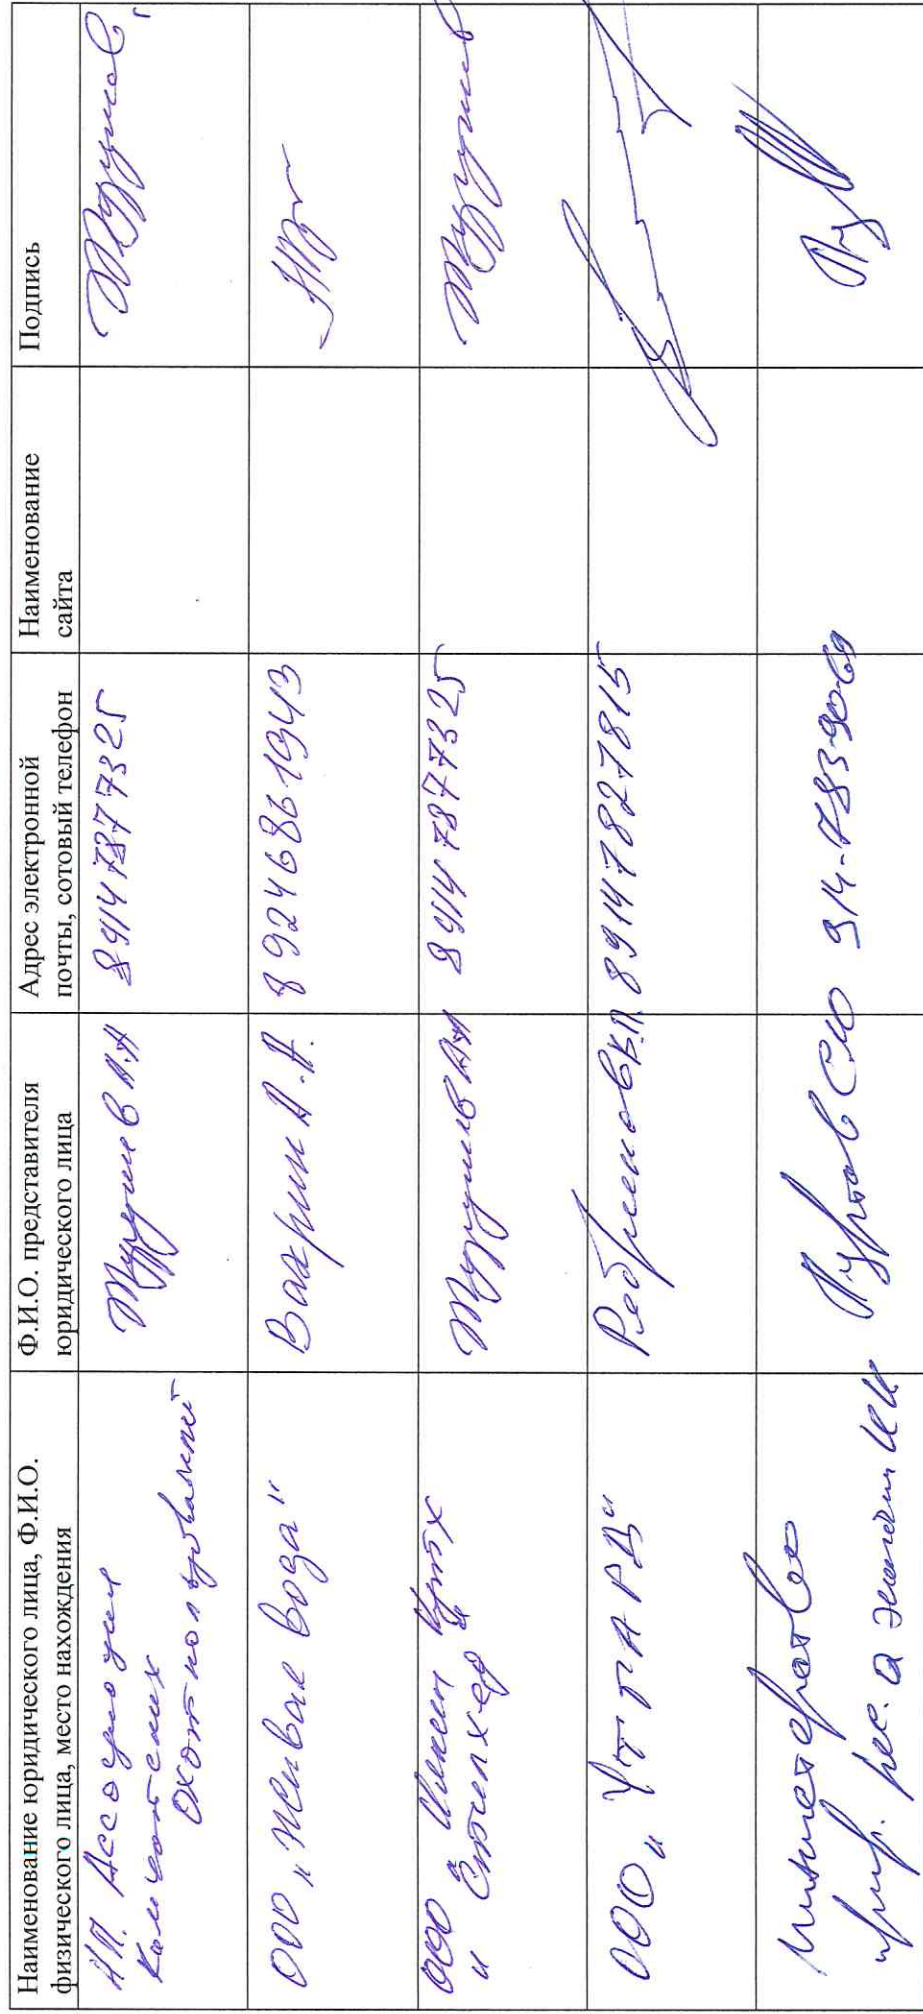 Наименование юридического лица, Ф.И.О.
физического лица, место нахождения
Ф.И.О. представителя
юридического лица
Адрес электронной
почты, сотовый телефон
Наименование
сайта
Подпись
НП Ассоциация
Камчатских
Охотпользователей
Турушев А.Н
89147877325
ООО „Живая Вода"
Вахрин А.А.
89246861943
ООО
Турушев АН
89147877325
ООО „УТГАРД"
Ребриков В.П.
89147827815
Министерство
прир. рес. и экологии КК
СЮ
914-783-90-69